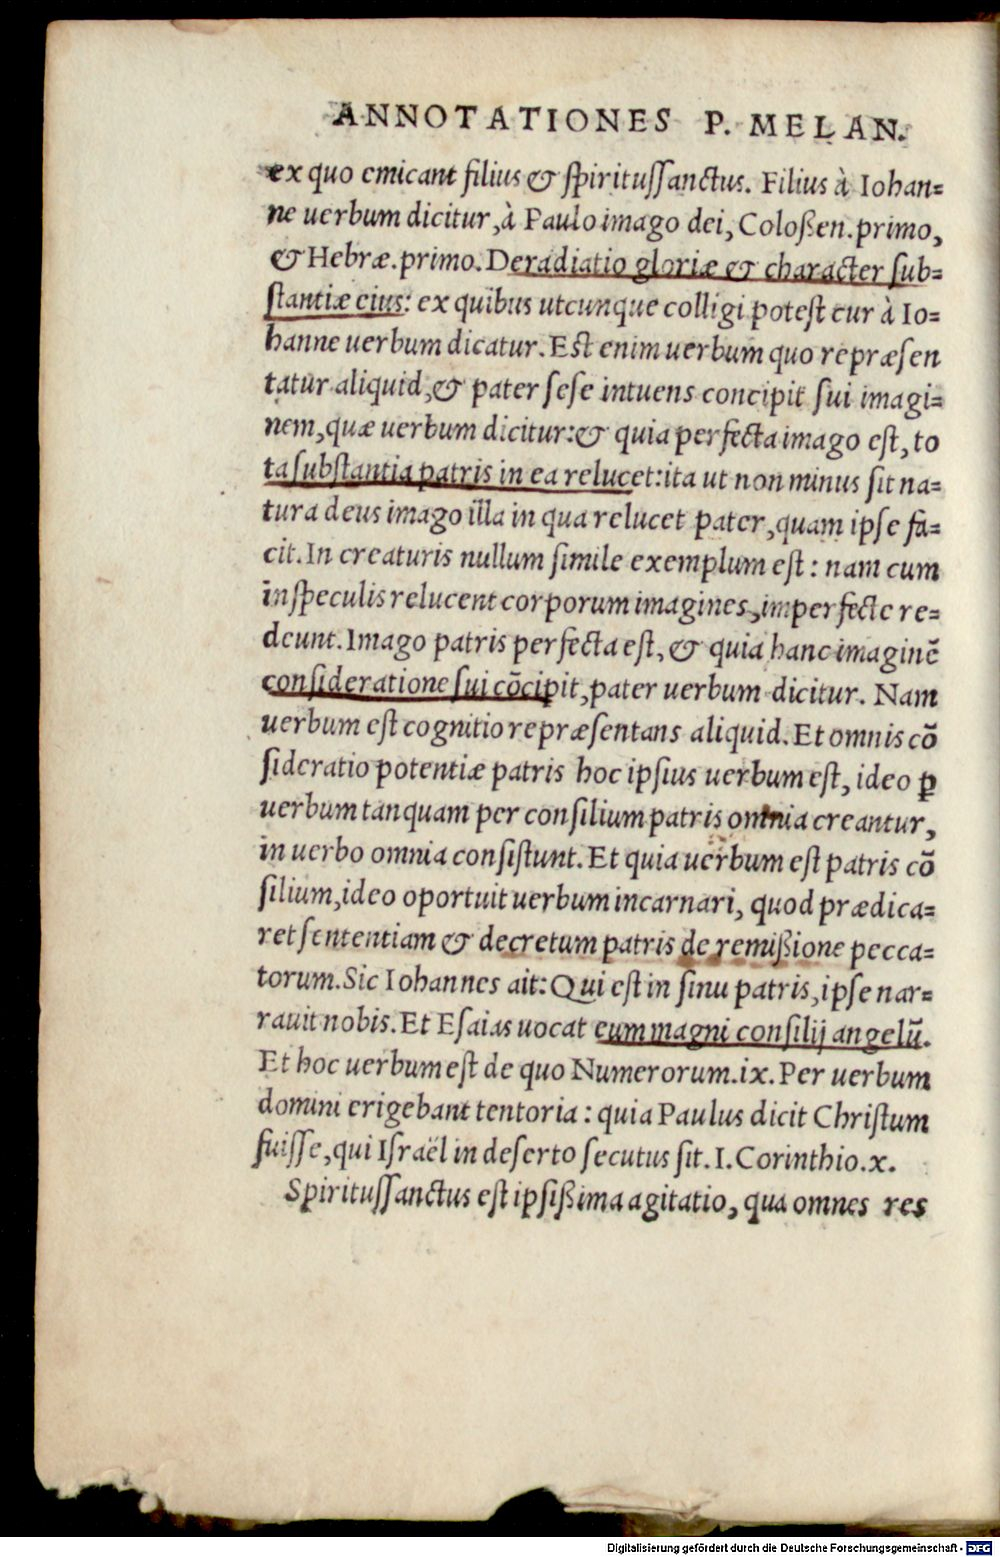 ANNOTATIONES P. MELAN.
ex quo emicant filius & spiritussanctus. Filius à Iohan=
ne uerbum dicitur, à Paulo imago dei, Coloßen. primo,
& Hebræ. primo. Deradiatio gloriæ & character sub=
stantiæ eius: ex quibus utcunque colligi potest cur à Io=
hanne uerbum dicatur. Est enim uerbum quo repræsen
tatur aliquid, & pater sese intuens concipit sui imagi=
nem, quæ uerbum dicitur: & quia perfecta imago est, to
ta substantia patris in ea relucet: ita ut non minus sit na=
tura deus imago illa in qua relucet pater, quam ipse fa=
cit. In creaturis nullum simile exemplum est: nam cum
in speculis relucent corporum imagines, imperfecte re=
deunt. Imago patris perfecta est, & quia hanc imaginē
consideratione sui cōcipit, pater uerbum dicitur. Nam
uerbum est cognitio repræsentans aliquid. Et omnis cō
sideratio potentiæ patris hoc ipsius uerbum est, ideo ꝑ
uerbum tanquam per consilium patris omnia creantur,
in uerbo omnia consistunt. Et quia uerbum est patris cō
silium, ideo oportuit uerbum incarnari, quod prædica=
ret sententiam & decretum patris de remißione pecca=
torum. Sic Iohannes ait: Qui est in sinu patris, ipse nar=
rauit nobis. Et Esaias uocat eum magni consilij angelū.
Et hoc uerbum est de quo Numerorum. ix. Per uerbum
domini erigebant tentoria: quia Paulus dicit Christum
fuisse, qui Israël in deserto secutus sit. I. Corinthio. x.
Spiritussanctus est ipsißima agitatio, qua omnes res
Digitalisierung gefördert durch die Deutsche Forschungsgemeinschaft - DFG